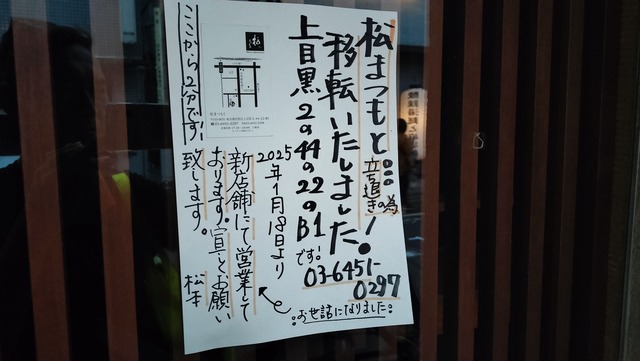 松まつもと
立ち退きの為
移転いたしました!
上目黒2の44の22のB1
です!
03-6451-
0297
2025年1月18日より
新店舗にて営業して
おります。宜しくお願い
致します。 松本
お世話になりました
ここから2分です!